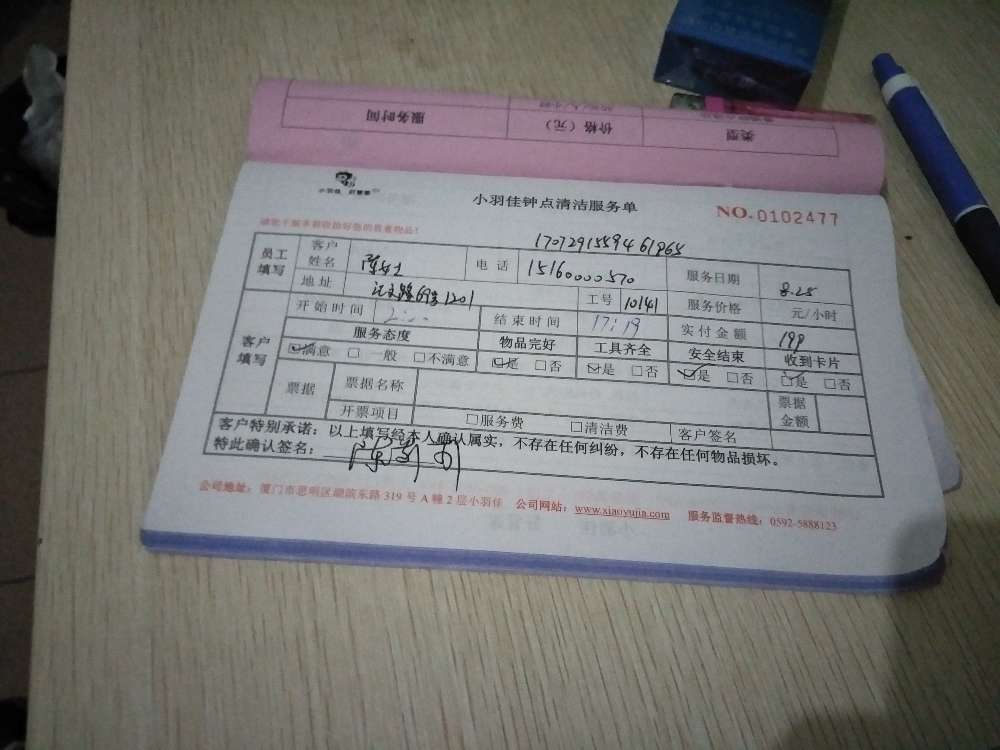 类型 价格（元） 服务时间
小羽佳
小羽佳钟点清洁服务单 NO.0102477
1707291559461865
员工填写 客户姓名 陈女士 电话 15160000570 服务日期 8.25
地址 1201 工号 10141 服务价格 元/小时
客户填写 开始时间 结束时间 17:19 实付金额 199
服务态度 物品完好 工具齐全 安全结束 收到卡片
☑满意 □一般 □不满意 ☑是 □否 ☑是 □否 ☑是 □否 ☑是 □否
票据 票据名称 票据金额
开票项目 □服务费 □清洁费 客户签名
客户特别承诺：以上填写经本人确认属实，不存在任何纠纷，不存在任何物品损坏。
特此确认签名：
公司地址：厦门市思明区湖滨东路319号A幢2层小羽佳 公司网站：www.xiaoyujia.com 服务监督热线：0592-5888123